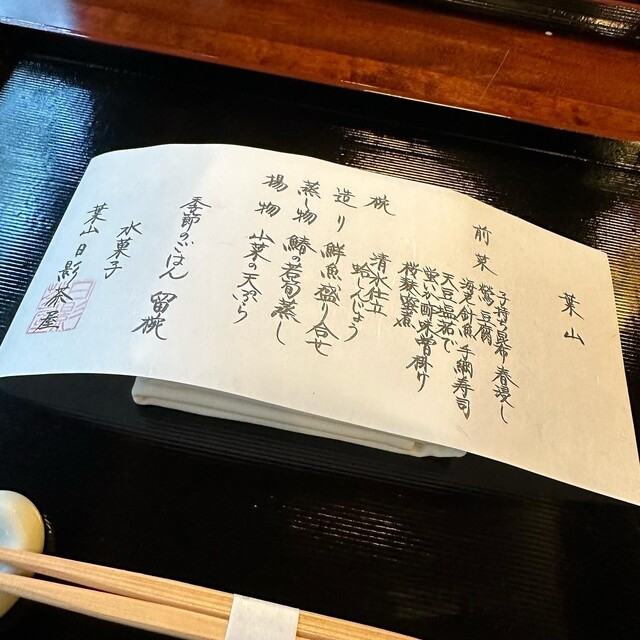 葉山
前菜
子持ち昆布 春浸し
鶯豆腐
姿見針魚 手綱寿司
天豆塩茹で
蛍いか酢味噌掛け
桜麩蜜煮
椀
清水仕立
蛤しんじょう
造り 鮮魚盛り合せ
蒸し物 鰆の若旬蒸し
揚物 山菜の天ぷら
季節ごはん 留椀
水菓子
葉山 日影茶屋